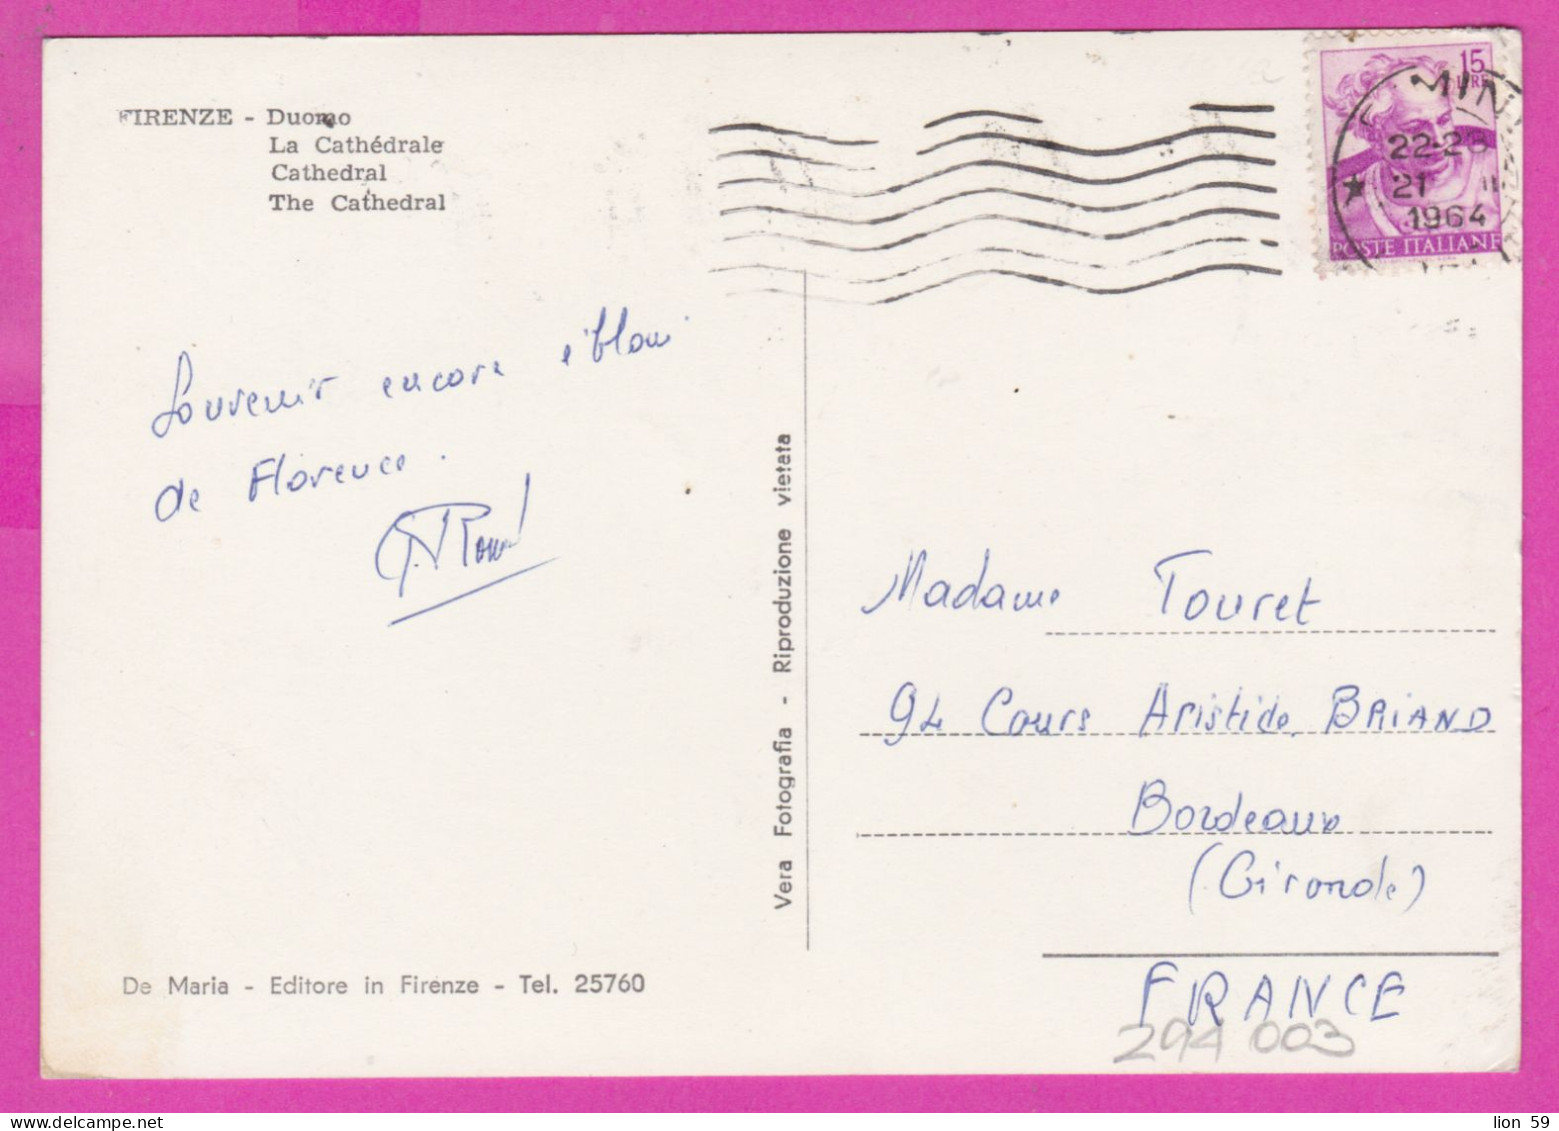 FIRENZE - Duomo
La Cathédrale
Cathedral
The Cathedral
15
LIRE
22-23
21 II
1964
POSTE ITALIANE
Souvenir encore ébloui
de Florence.
Vera Fotografia - Riproduzione vietata
Madame Touret
94 Cours Aristide BRIAND
Bordeaux
(Gironde)
FRANCE
294 003
De Maria - Editore in Firenze - Tel. 25760
lion 59